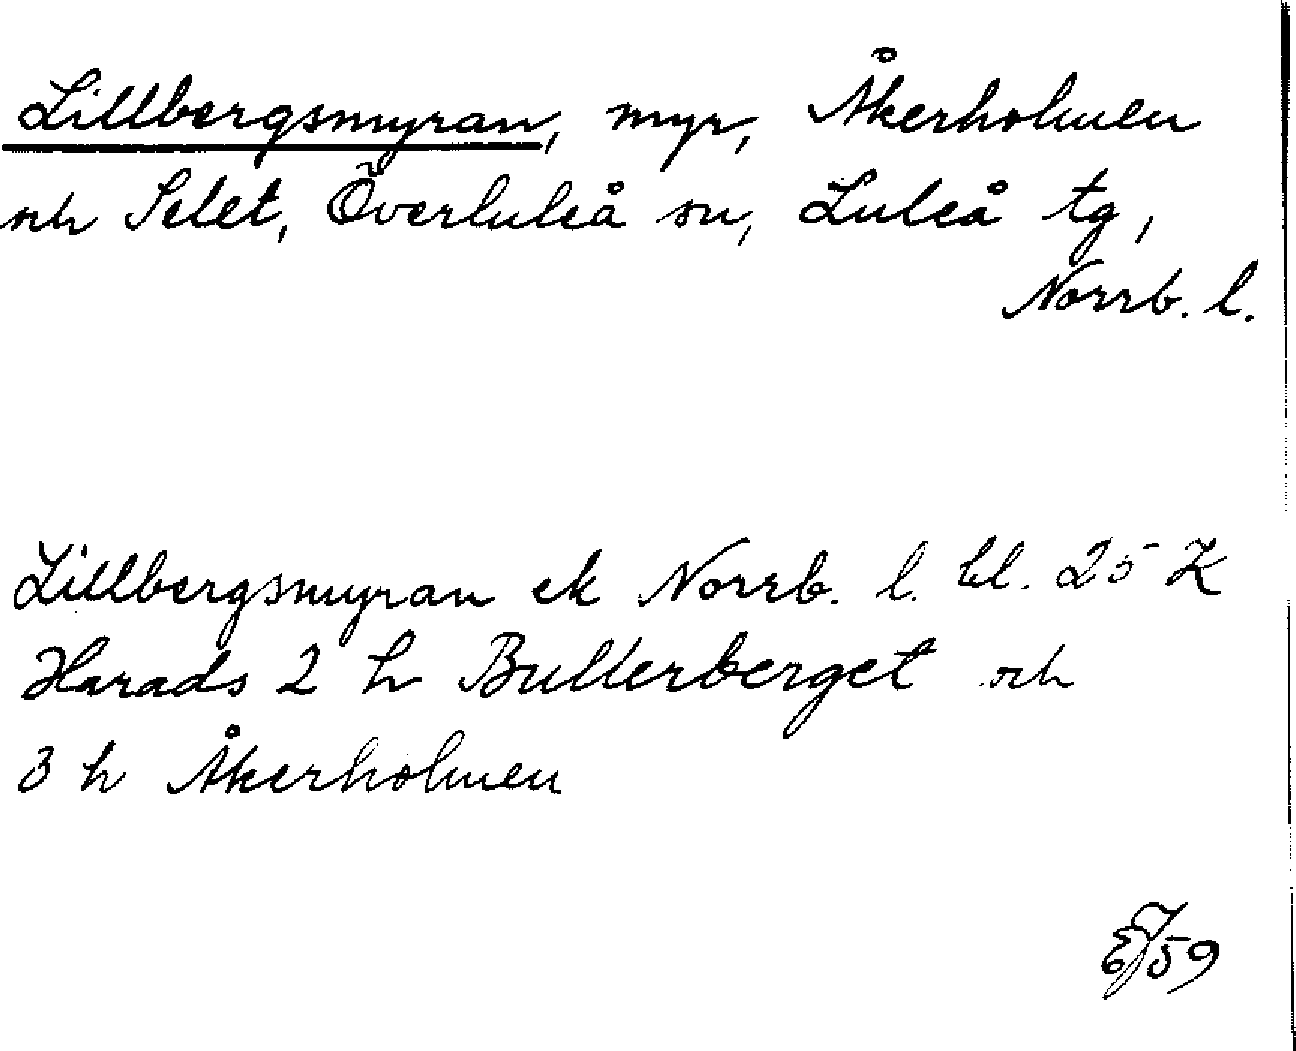 Lillbergsmyran, myr, Åkerholmen
och Selet, Överluleå sn, Luleå tg,
Norrb. l.
Lillbergsmyran ek Norrb. l. bl. 25 K
Harads 2 h Bullerberget och
3 h Åkerholmen
EJ 59